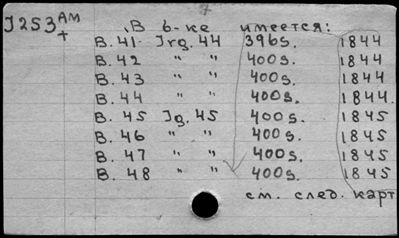 J253 AM
+
В б-ке имеется:
B. 41 Jrg. 44 396S. 1844
B. 42 " " 400S. 1844
B. 43 " " 400S. 1844
B. 44 " " 400S. 1844.
B. 45 Jg. 45 400S. 1845
B. 46 " " 400S. 1845
B. 47 " " 400S. 1845
B. 48 " " 400S. 1845
см. след. карт